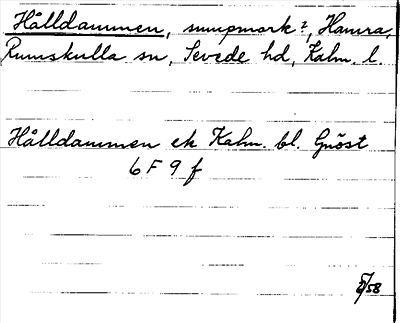 Hålldammen, sumpmark?, Hamra,
Rumskulla sn, Sevede hd, Kalm. l.
Hålldammen ek Kalm. bl. Gnöst
6 F 9 f
5/58